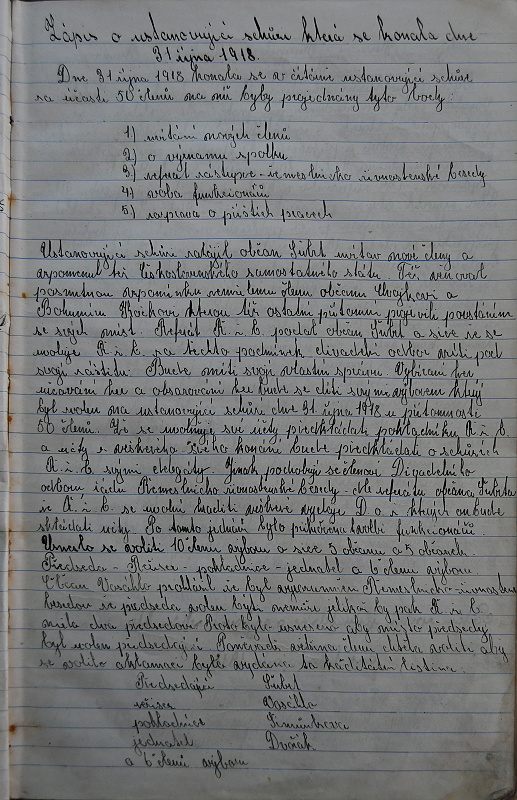 Zápis o ustanovující schůzi která se konala dne
31 října 1918.
Dne 31 října 1918 konala se v čítárně ustanovující schůze
za účasti 50 členů na nů byly projednány tyto body:
1) uvítání nových členů
2) o významu spolku
3) referát zástupce řemeslnicko živnostenské besedy
4) volba funkcionářů
5) rozprava o příštích pracech
Ustanovující schůzi zahájil občan Šubrt uvítav nové členy a
vzpomenul též Československého samostatného státu. Též věnoval
posmutnou vzpomínku zemřelému členu občanu a
Bohumíru kterou též ostatní přítomní projevili povstáním
se svých míst. Referát Ř. i ž. podal občan Šubrt a sice že se
uvoluje Ř. i ž. za těchto podmínek divadelní odbor vzíti pod
svoji záštitu. Bude míti svoji vlastní správu. Vybírání her
nacvičování her a obsazování her bude se díti svým výborem který
byl volen na ustanovující schůzi dne 31 října 1918 u přítomnosti
50 členů. Že se uvolňuje své účty předkládati pokladníku Ř. i ž.
a účty z veškerého konání bude předkládati o schůzích
Ř. i ž. svými delegáty. Jinak podrobují se členové Divadelního
odboru řádu Řemeslnicko živnostenské besedy. Dle referátu občana Šubrta
že Ř. i ž. se uvolní hraditi veškeré výdaje D. o. z kterých on bude
skládati účty. Po tomto jednání bylo přikročeno k volbě funkcionářů.
Usneslo se voliti 10 člennů výboru a sice 5 občanů a 5 občanek.
Předseda - Režisér - pokladnice - jednatel a 6 členů výboru
Občan Vaschta prohlásil že byl Řemeslnicko živnostenskou
besedou že předseda volen býti nemůže jelikož by pak Ř. i ž.
měla dva předsedové. Proto bylo usneseno aby místo předsedy
byl volen předsedající. Poněvadž většina členů chtěla voliti aby
se volilo aklamací byla vydána ta kážditická listina.
Předsedající Šubrt
režisér Vaschta
pokladnice Šimůnková
jednatel Dvořák
a 6 členů výboru